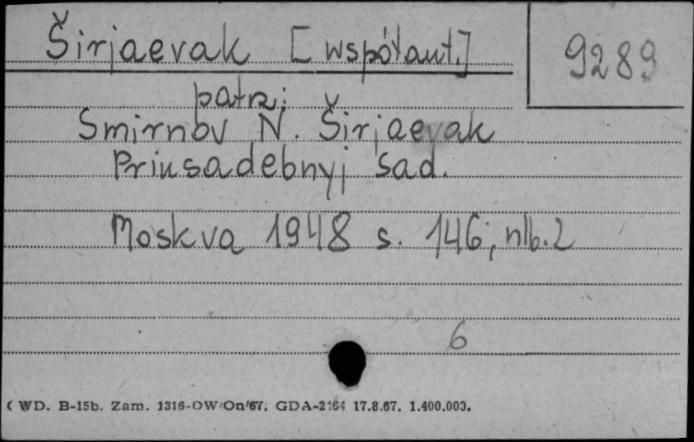 Širjaevak [współaut.]
9289
patrz:
Smirnov N. Širjaevak
Priusadebnyj sad.
Moskva 1948 s. 146, nlb. 2
6
WD. B-15b. Zam. 1316-DW/On/67. GDA-2164 17.8.67. 1.400.000.